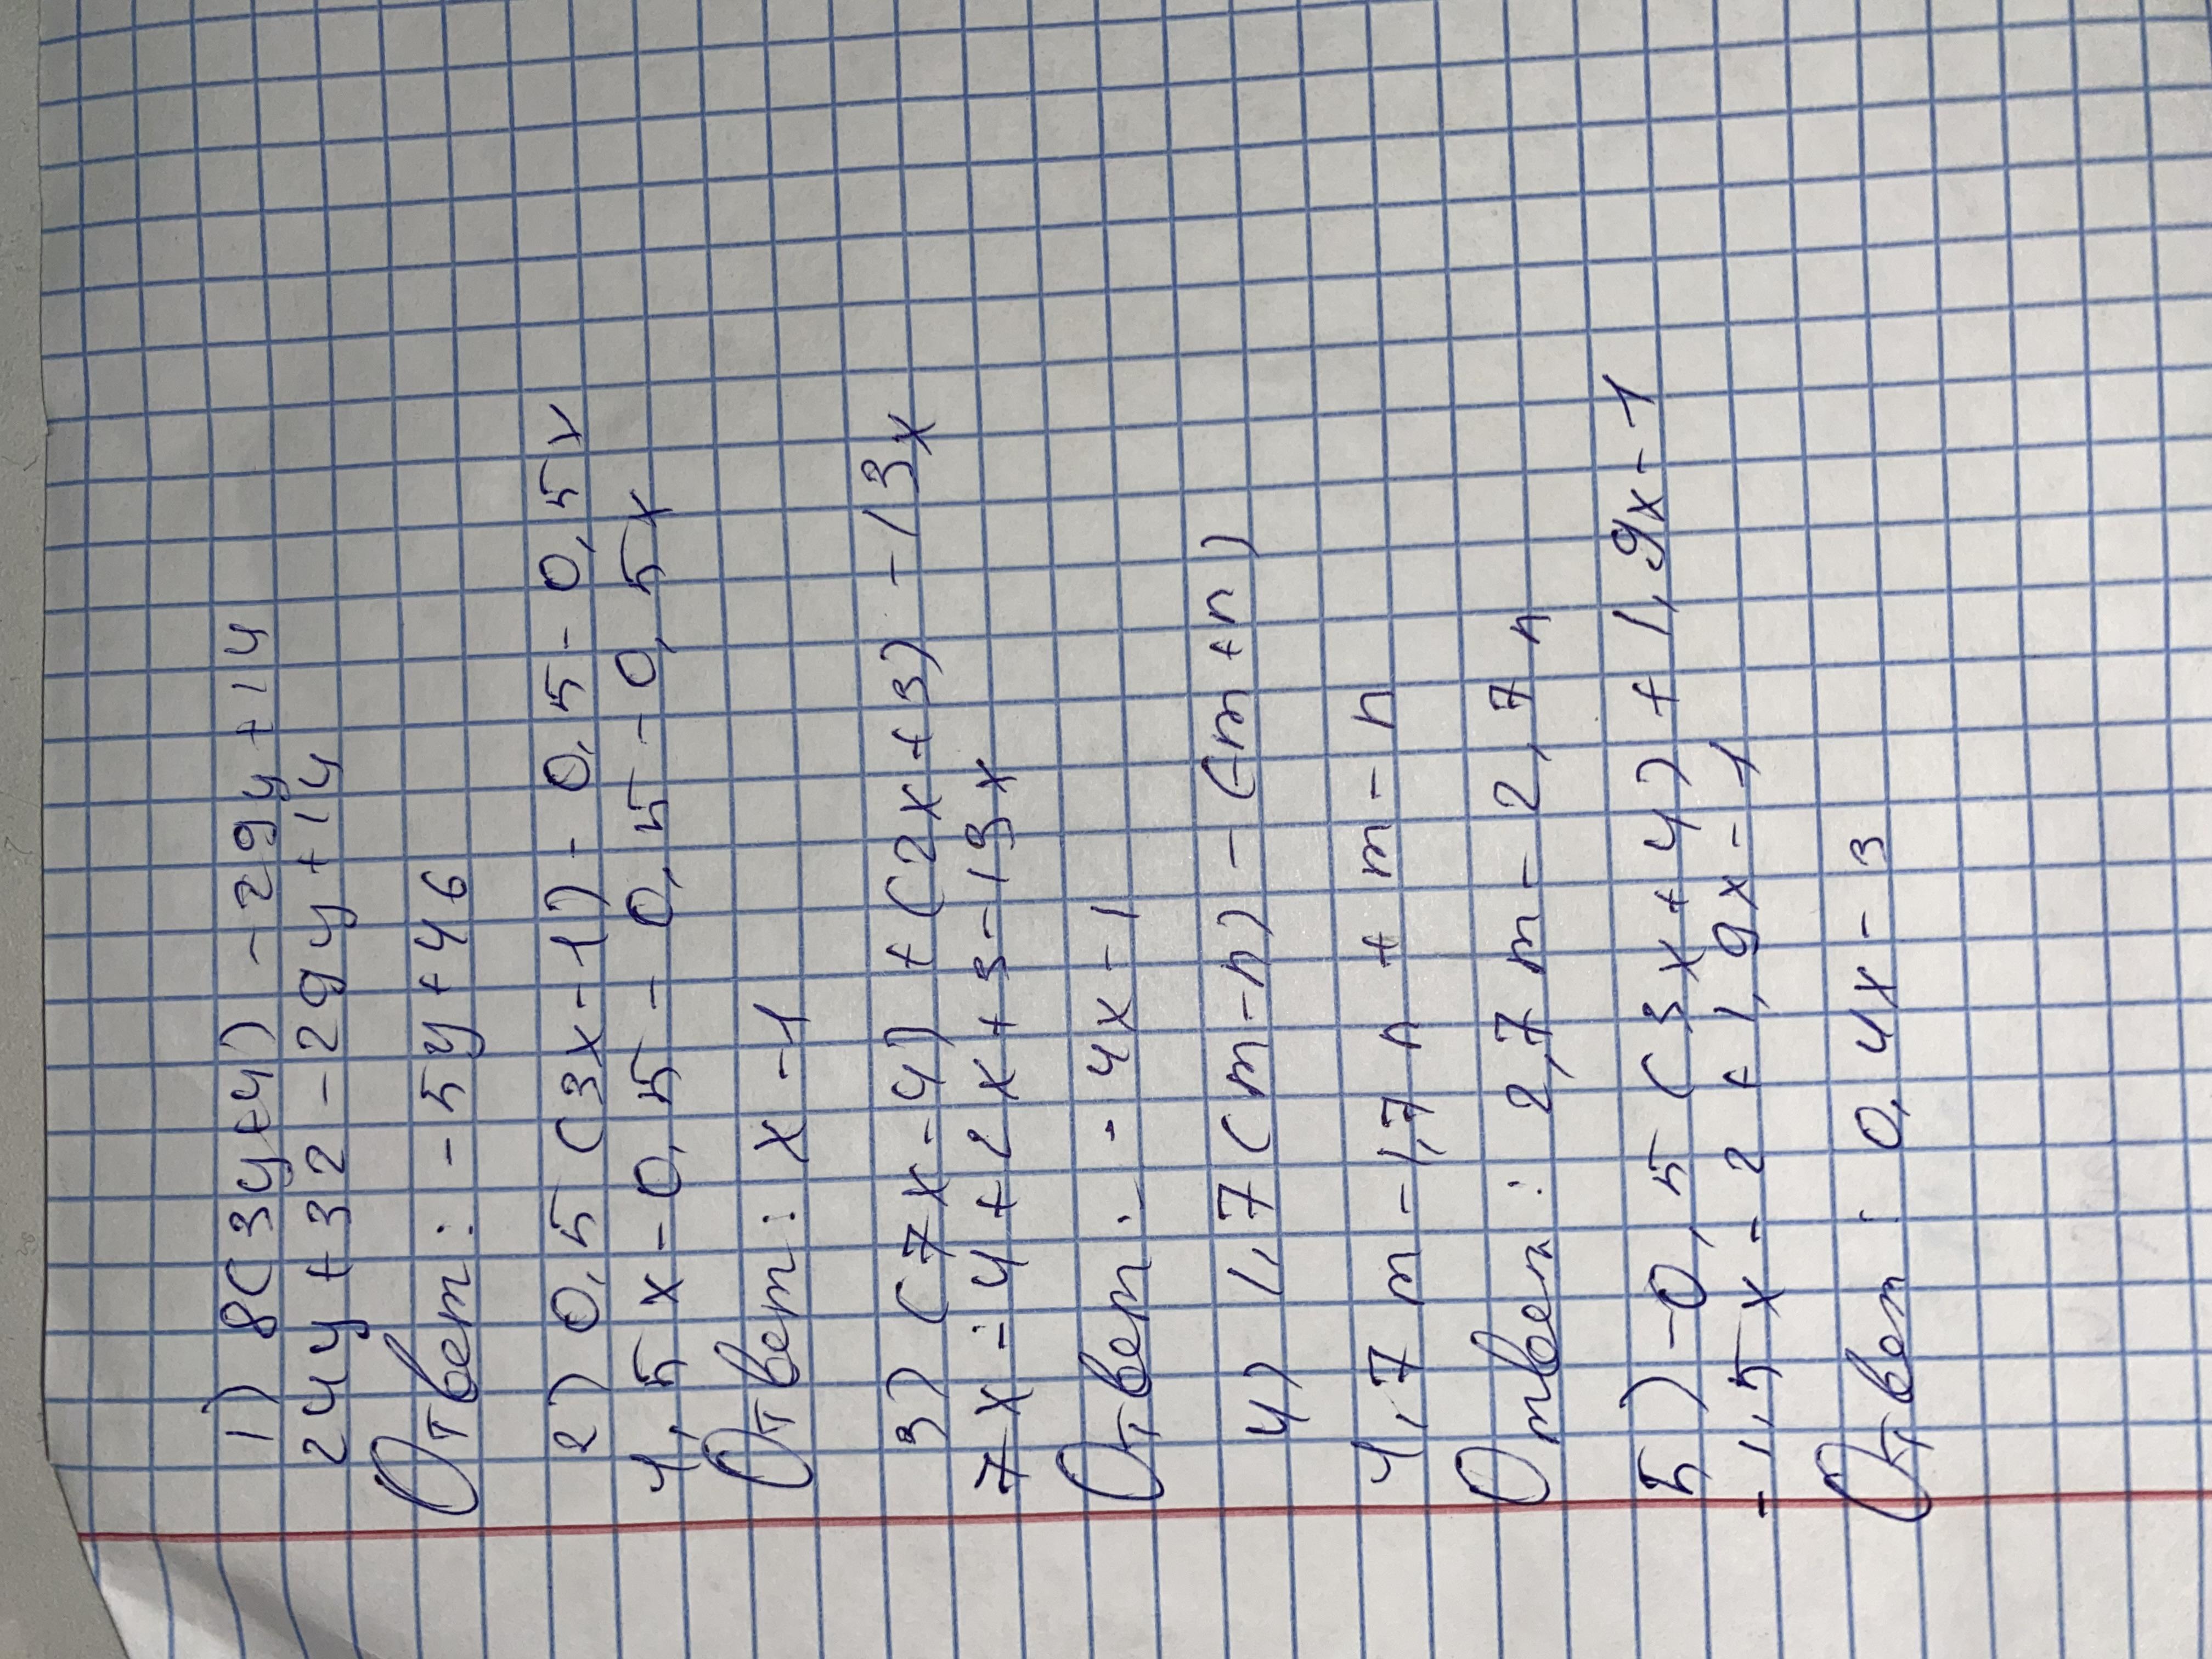 1) 8(3y+4) - 29y + 14
24y + 32 - 29y + 14
Ответ: -5y + 46
2) 0,5(3x-1) - 0,5 - 0,5x
1,5x - 0,5 - 0,5 - 0,5x
Ответ: x - 1
3) (7x-4) + (2x+3) - 13x
7x - 4 + 2x + 3 - 13x
Ответ: -4x - 1
4) 1,7(m-n) - (-m+n)
1,7m - 1,7n + m - n
Ответ: 2,7m - 2,7n
5) -0,5(3x+4) + 1,9x - 1
-1,5x - 2 + 1,9x - 1
Ответ: 0,4x - 3